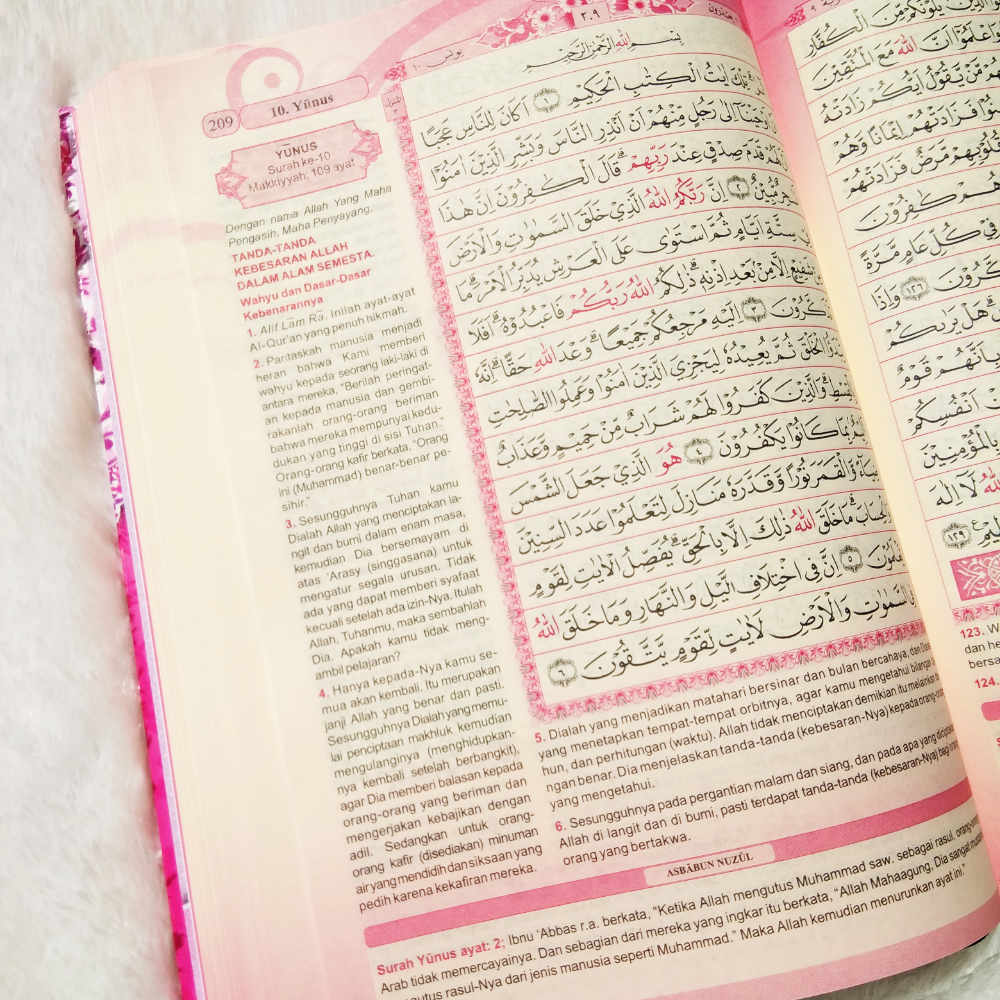 209
10. Yūnus
YŪNUS
Surah ke-10
Makkiyyah, 109 ayat
Dengan nama Allah Yang Maha
Pengasih, Maha Penyayang.
TANDA-TANDA
KEBESARAN ALLAH
DALAM ALAM SEMESTA.
Wahyu dan Dasar-Dasar
Kebenarannya
1. Alif Lām Rā. Inilah ayat-ayat
Al-Qur'an yang penuh hikmah.
2. Pantaskah manusia menjadi
heran bahwa Kami memberi
wahyu kepada seorang laki-laki di
antara mereka, "Berilah peringat-
an kepada manusia dan gembi-
rakanlah orang-orang beriman
bahwa mereka mempunyai kedu-
dukan yang tinggi di sisi Tuhan."
Orang-orang kafir berkata, "Orang
ini (Muhammad) benar-benar pe-
sihir."
3. Sesungguhnya Tuhan kamu
Dialah Allah yang menciptakan la-
ngit dan bumi dalam enam masa,
kemudian Dia bersemayam di
atas 'Arasy (singgasana) untuk
mengatur segala urusan. Tidak
ada yang dapat memberi syafaat
kecuali setelah ada izin-Nya. Itulah
Allah, Tuhanmu, maka sembahlah
Dia. Apakah kamu tidak meng-
ambil pelajaran?
4. Hanya kepada-Nya kamu se-
mua akan kembali. Itu merupakan
janji Allah yang benar dan pasti.
Sesungguhnya Dialah yang memu-
lai penciptaan makhluk kemudian
mengulanginya (menghidupkan-
nya kembali setelah berbangkit),
agar Dia memberi balasan kepada
orang-orang yang beriman dan
mengerjakan kebajikan dengan
adil. Sedangkan untuk orang-
orang kafir (disediakan) minuman
air yang mendidih dan siksaan yang
pedih karena kekafiran mereka.
يونس ١٠
٢٠٩
بِسْمِ اللهِ الرَّحْمٰنِ الرَّحِيْمِ
تِلْكَ اٰيٰتُ الْكِتٰبِ الْحَكِيْمِ ۝١ اَكَانَ لِلنَّاسِ عَجَبًا
اَوْحَيْنَآ اِلٰى رَجُلٍ مِّنْهُمْ اَنْ اَنْذِرِ النَّاسَ وَبَشِّرِ الَّذِيْنَ اٰمَنُوْٓا
لَهُمْ قَدَمَ صِدْقٍ عِنْدَ رَبِّهِمْ ۗ قَالَ الْكٰفِرُوْنَ اِنَّ هٰذَا
مُّبِيْنٌ ۝٢ اِنَّ رَبَّكُمُ اللهُ الَّذِيْ خَلَقَ السَّمٰوٰتِ وَالْاَرْضَ
سِتَّةِ اَيَّامٍ ثُمَّ اسْتَوٰى عَلَى الْعَرْشِ يُدَبِّرُ الْاَمْرَ ۗ مَا
شَفِيْعٍ اِلَّا مِنْۢ بَعْدِ اِذْنِهٖ ۗ ذٰلِكُمُ اللهُ رَبُّكُمْ فَاعْبُدُوْهُ ۗ اَفَلَا
تَذَكَّرُوْنَ ۝٣ اِلَيْهِ مَرْجِعُكُمْ جَمِيْعًا ۗ وَعْدَ اللهِ حَقًّا ۗ اِنَّهٗ
الْخَلْقَ ثُمَّ يُعِيْدُهٗ لِيَجْزِيَ الَّذِيْنَ اٰمَنُوْا وَعَمِلُوا الصّٰلِحٰتِ
بِالْقِسْطِ ۗ وَالَّذِيْنَ كَفَرُوْا لَهُمْ شَرَابٌ مِّنْ حَمِيْمٍ وَّعَذَابٌ
بِمَا كَانُوْا يَكْفُرُوْنَ ۝٤ هُوَ الَّذِيْ جَعَلَ الشَّمْسَ
وَّالْقَمَرَ نُوْرًا وَّقَدَّرَهٗ مَنَازِلَ لِتَعْلَمُوْا عَدَدَ السِّنِيْنَ
وَالْحِسَابَ ۗ مَا خَلَقَ اللهُ ذٰلِكَ اِلَّا بِالْحَقِّ ۗ يُفَصِّلُ الْاٰيٰتِ لِقَوْمٍ
۝٥ اِنَّ فِى اخْتِلَافِ الَّيْلِ وَالنَّهَارِ وَمَا خَلَقَ اللهُ
السَّمٰوٰتِ وَالْاَرْضِ لَاٰيٰتٍ لِّقَوْمٍ يَّتَّقُوْنَ ۝٦
5. Dialah yang menjadikan matahari bersinar dan bulan bercahaya, dan
yang menetapkan tempat-tempat orbitnya, agar kamu mengetahui bilangan
hun, dan perhitungan (waktu). Allah tidak menciptakan demikian itu melainkan
ngan benar. Dia menjelaskan tanda-tanda (kebesaran-Nya) kepada orang-
yang mengetahui.
6. Sesungguhnya pada pergantian malam dan siang, dan pada apa yang
Allah di langit dan di bumi, pasti terdapat tanda-tanda (kebesaran-Nya) bagi
orang yang bertakwa.
ASBĀBUN NUZŪL
Surah Yūnus ayat: 2; Ibnu 'Abbas r.a. berkata, "Ketika Allah mengutus Muhammad saw. sebagai rasul,
Arab tidak memercayainya. Dan sebagian dari mereka yang ingkar itu berkata, "Allah Mahaagung, Dia sangat
rasul-Nya dari jenis manusia seperti Muhammad." Maka Allah kemudian menurunkan ayat ini."
يَلُوْنَكُمْ مِّنَ الْكُفَّارِ
وَاعْلَمُوْٓا اَنَّ اللهَ مَعَ الْمُتَّقِيْنَ
مَّنْ يَّقُوْلُ اَيُّكُمْ زَادَتْهُ
فَزَادَتْهُمْ اِيْمَانًا وَّهُمْ
قُلُوْبِهِمْ مَّرَضٌ فَزَادَتْهُمْ
وَهُمْ كٰفِرُوْنَ
فِيْ كُلِّ عَامٍ مَّرَّةً
۝١٢٦ وَاِذَا
هَلْ يَرٰىكُمْ
بِاَنَّهُمْ قَوْمٌ
مِّنْ اَنْفُسِكُمْ
بِالْمُؤْمِنِيْنَ
اللهُ لَآ اِلٰهَ
۝١٢٩
123.
dan
124.